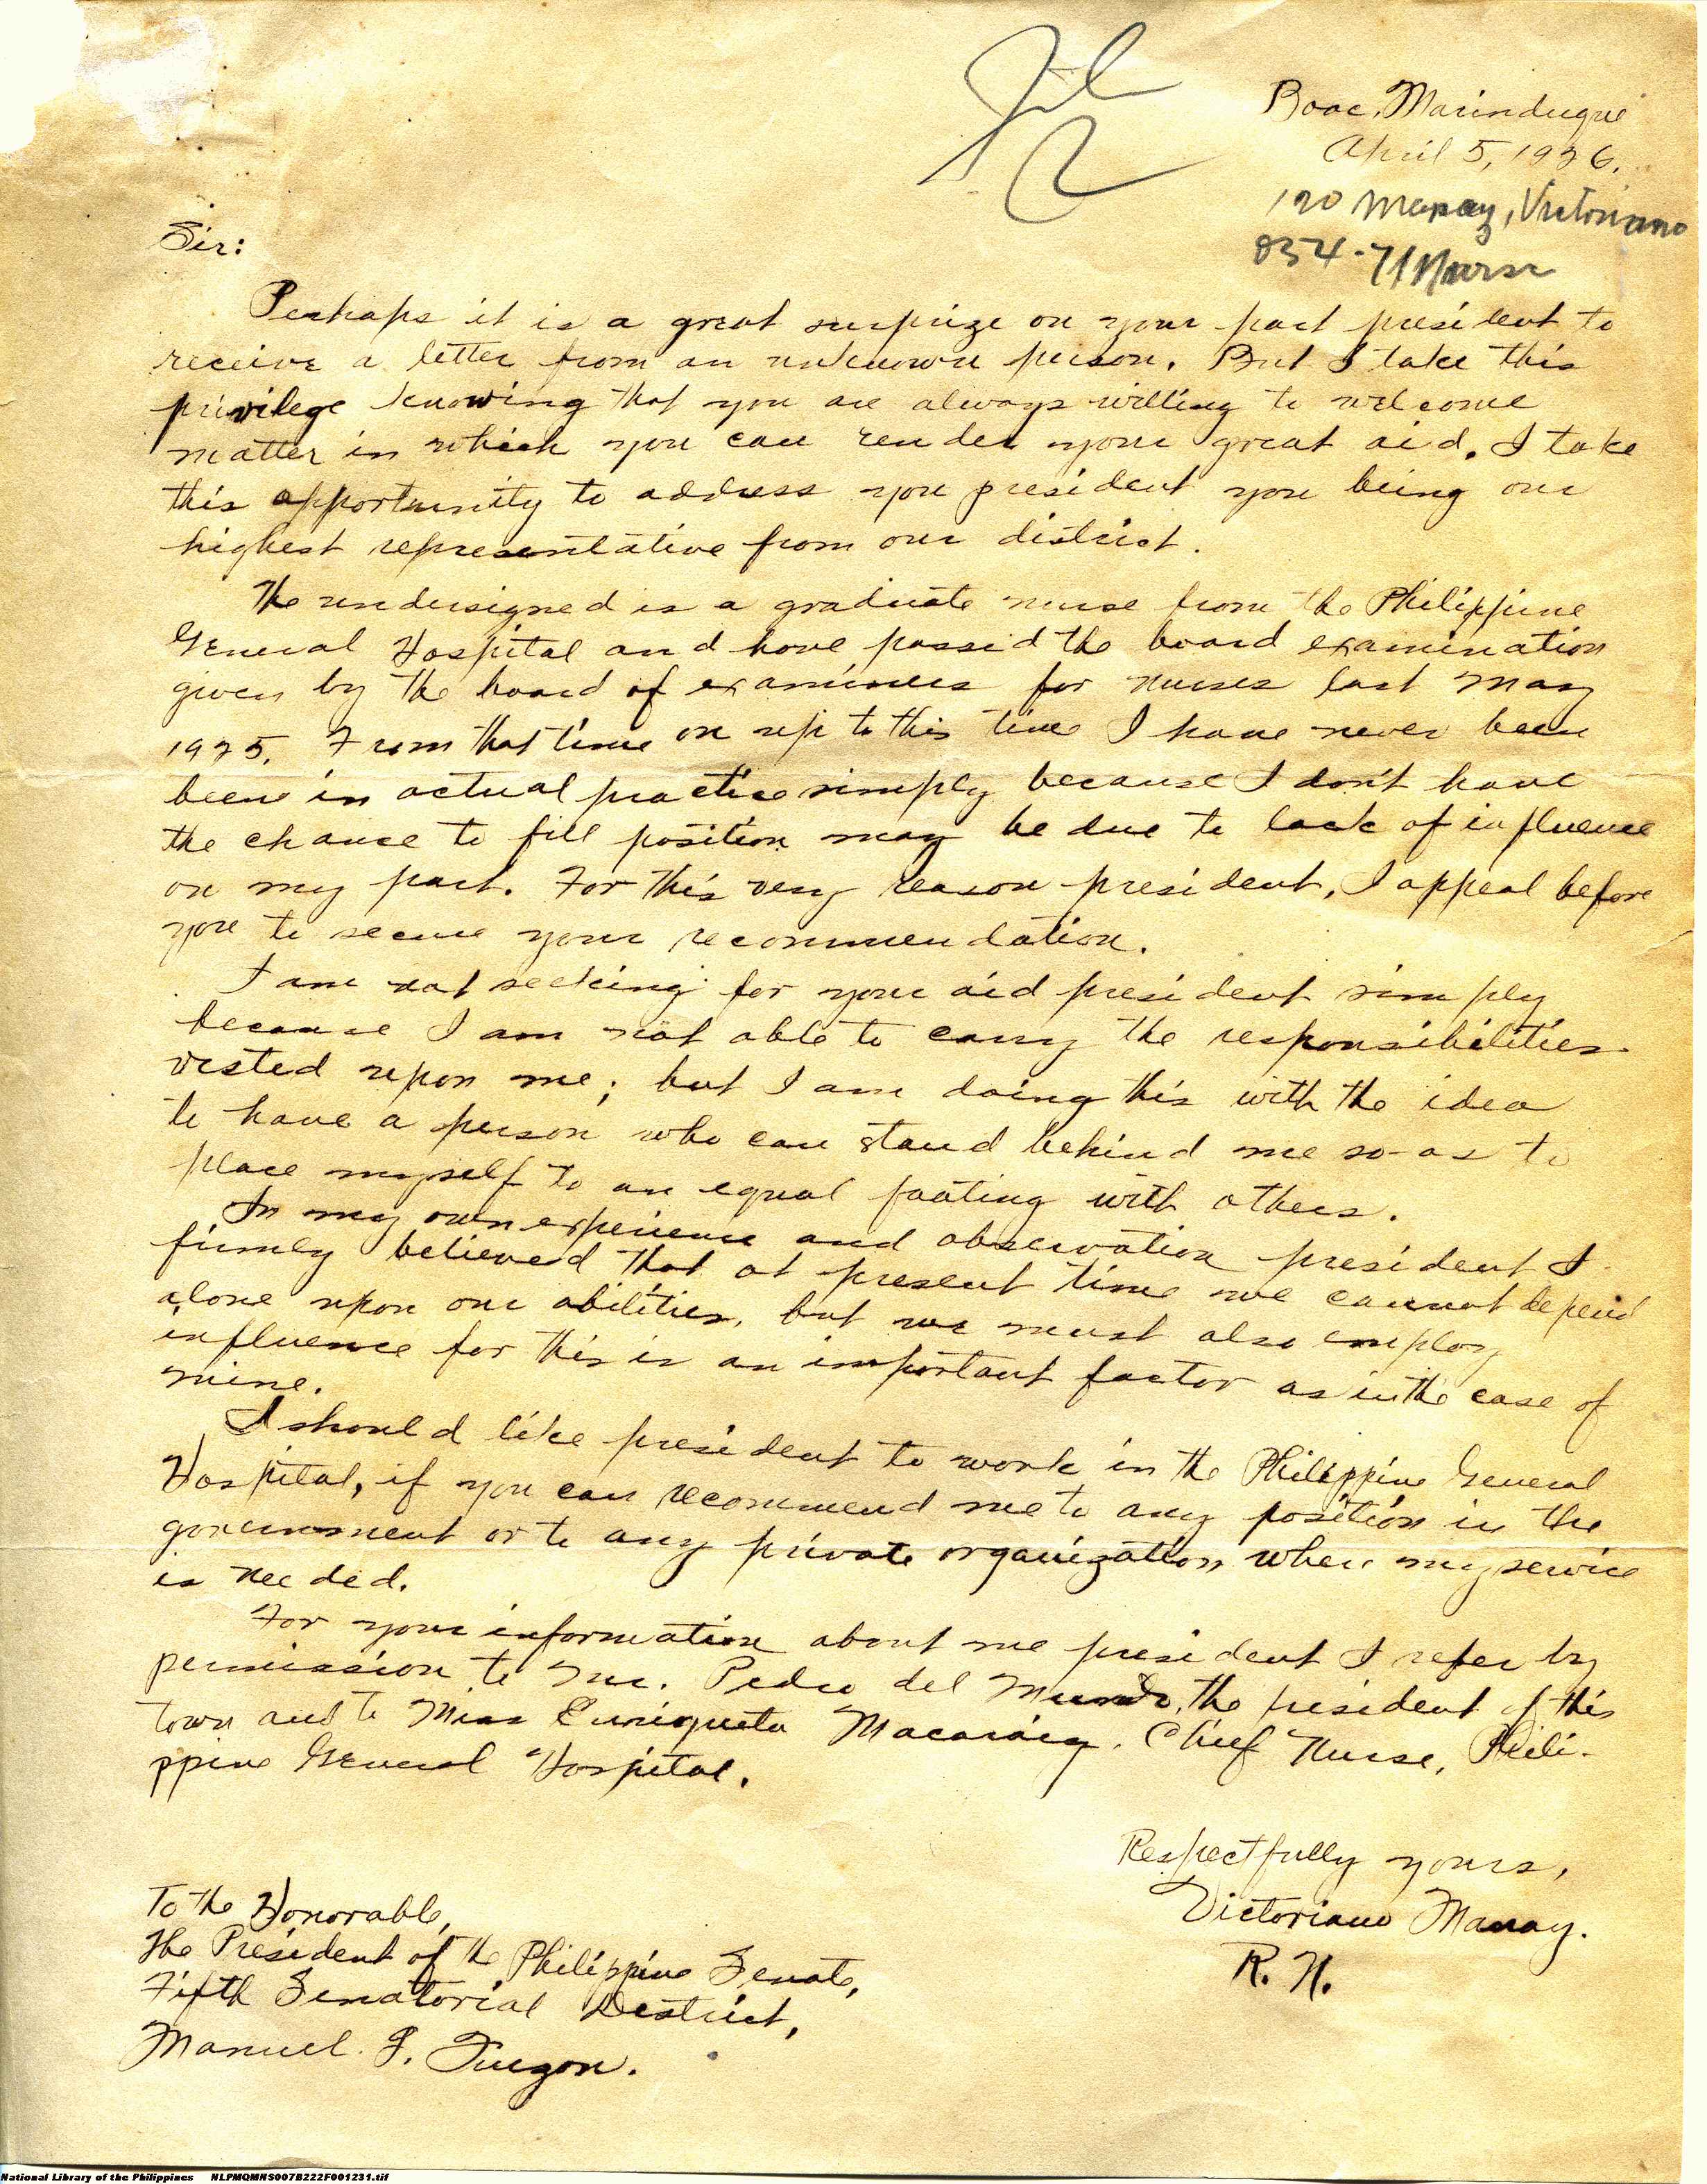 Boac, Marinduque
April 5, 1926.
120 Manay, Victoriano
854-71 Nurse
Sir:
Perhaps it is a great surprize on your part president to
receive a letter from an unknown person. But I take this
privilege knowing that you are always willing to welcome
matter in which you can render your great aid. I take
this opportunity to address you president you being our
highest representative from our district.
The undersigned is a graduate nurse from the Philippine
General Hospital and have passed the board examination
given by the board of examiners for nurses last May
1925. From that time on up to this time I have never been
been in actual practice simply because I don't have
the chance to fill position may be due to lack of influence
on my part. For this very reason president, I appeal before
you to secure your recommendation.
I am not seeking for your aid president simply
because I am not able to carry the responsibilities
vested upon me; but I am doing this with the idea
to have a person who can stand behind me so as to
place myself to an equal footing with others.
In my own experience and observation president I
firmly believed that at present time we cannot depend
alone upon our abilities, but we must also employ
influence for this is an important factor as in the case of
mine.
I should like president to work in the Philippine General
Hospital, if you can recommend me to any position in the
government or to any private organization where my service
is needed.
For your information about me president I refer by
permission to Mr. Pedro del Mundo, the president of this
town and to Miss Enriqueta Macaraig, Chief Nurse, Phili-
ppine General Hospital.
Respectfully yours,
Victoriano Manay.
R. N.
To the Honorable,
The President of the Philippine Senate,
Fifth Senatorial District,
Manuel L. Quezon.
National Library of the Philippines NLPMQMNS007B222F001231.tif